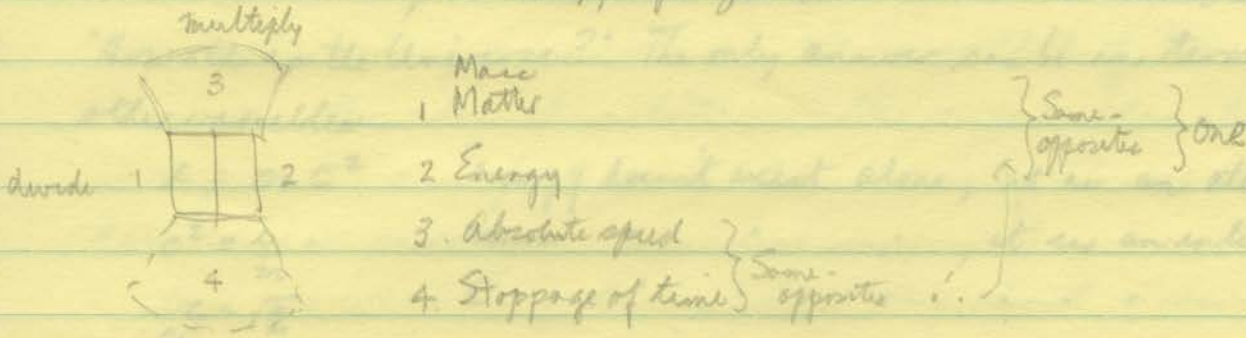 multiply
3
divide 1 2
4
Mass
1 Matter
2 Energy
3. Absolute speed
4. Stoppage of time
Same-
opposites
∴
Same-
opposites
one